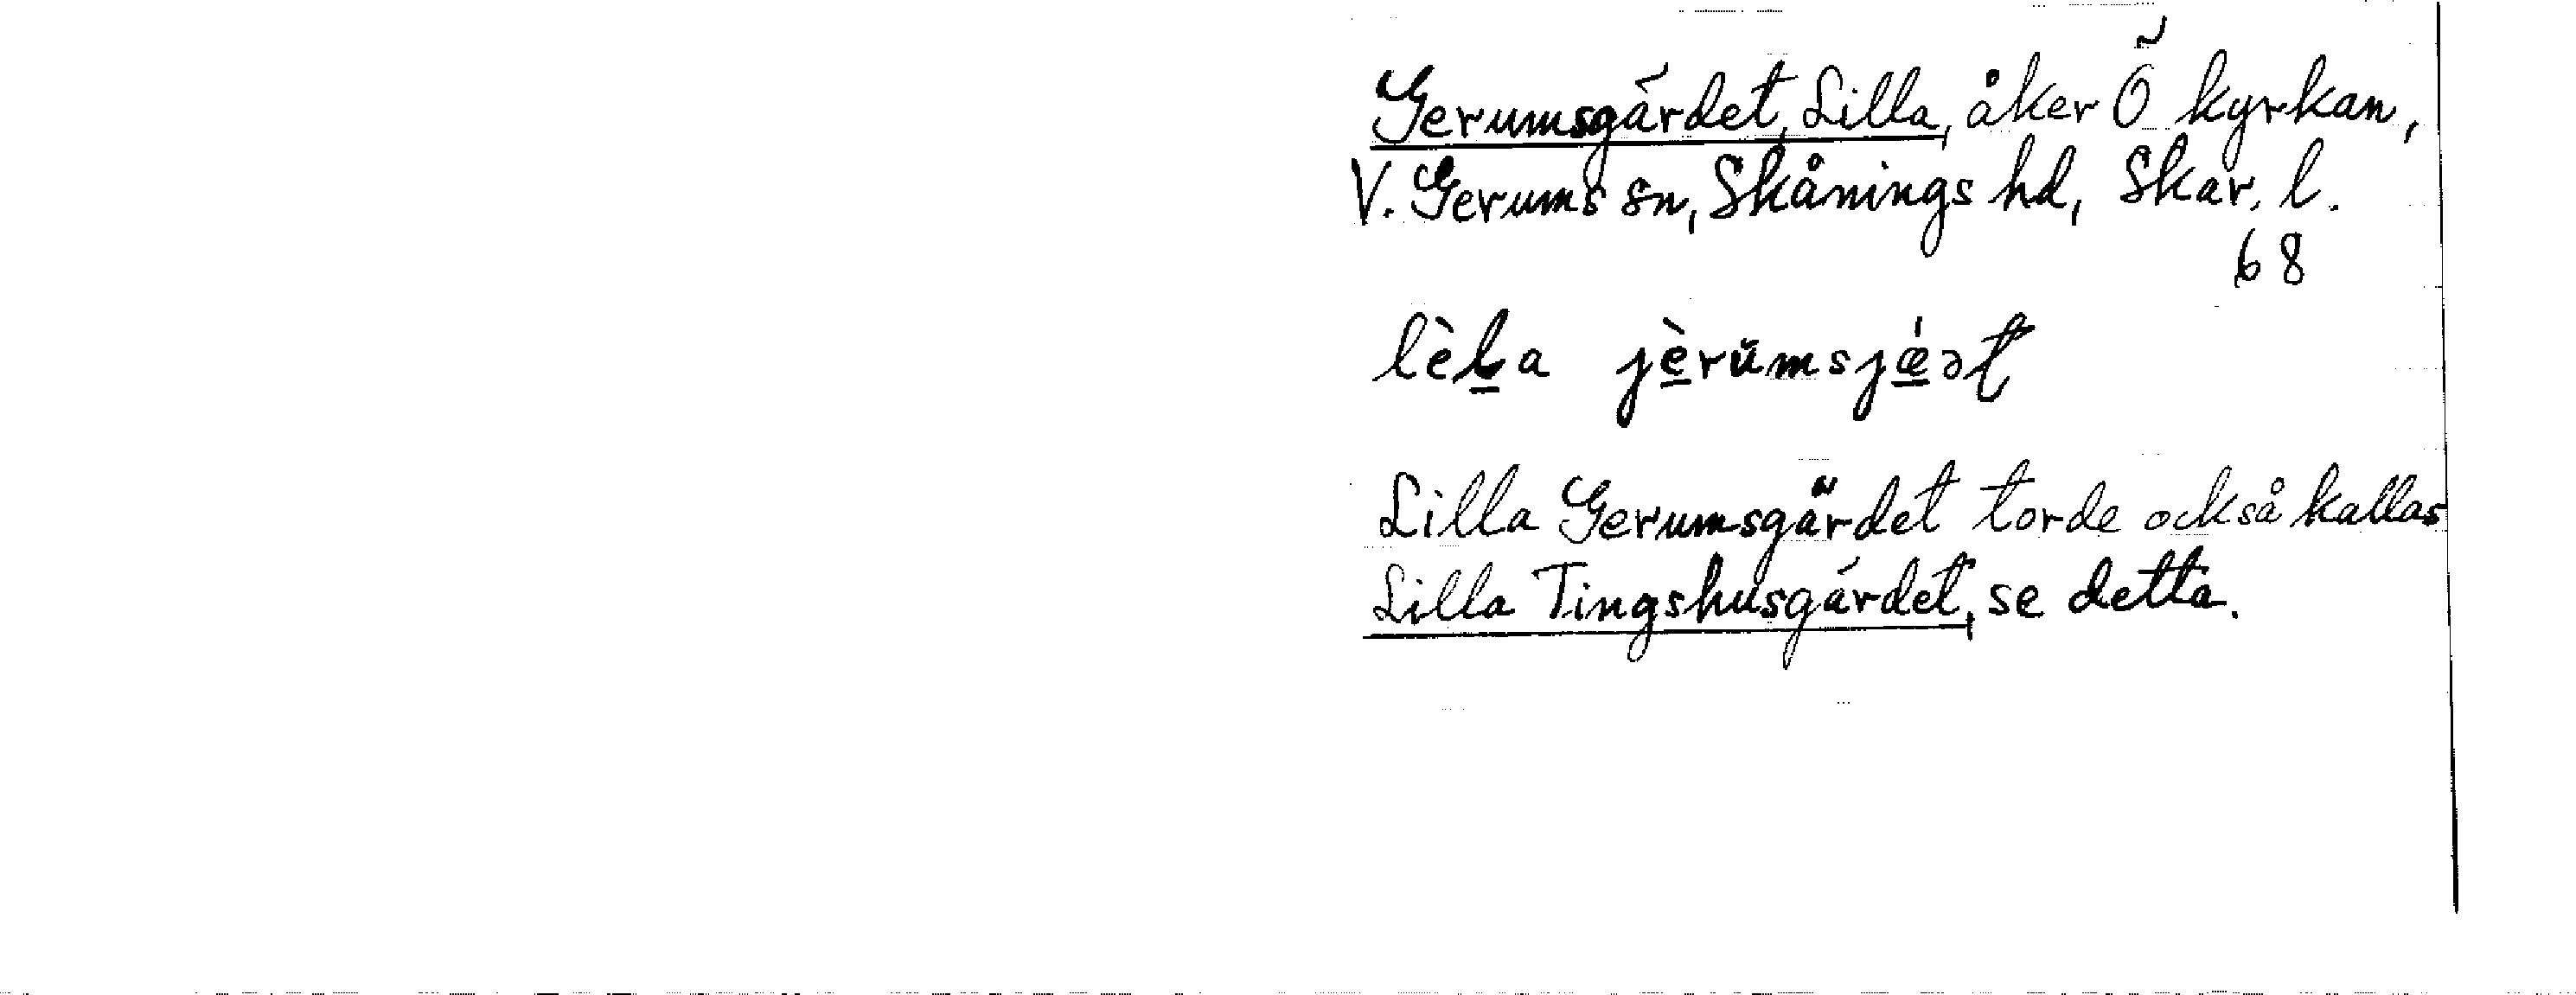 Gerumsgärdet, Lilla, åker Ö kyrkan,
V. Gerums sn, Skånings hd, Skar. l.
68
lèḻa jèrŭmsjǽət
Lilla Gerumsgärdet torde också kallas
Lilla Tingshusgärdet, se detta.